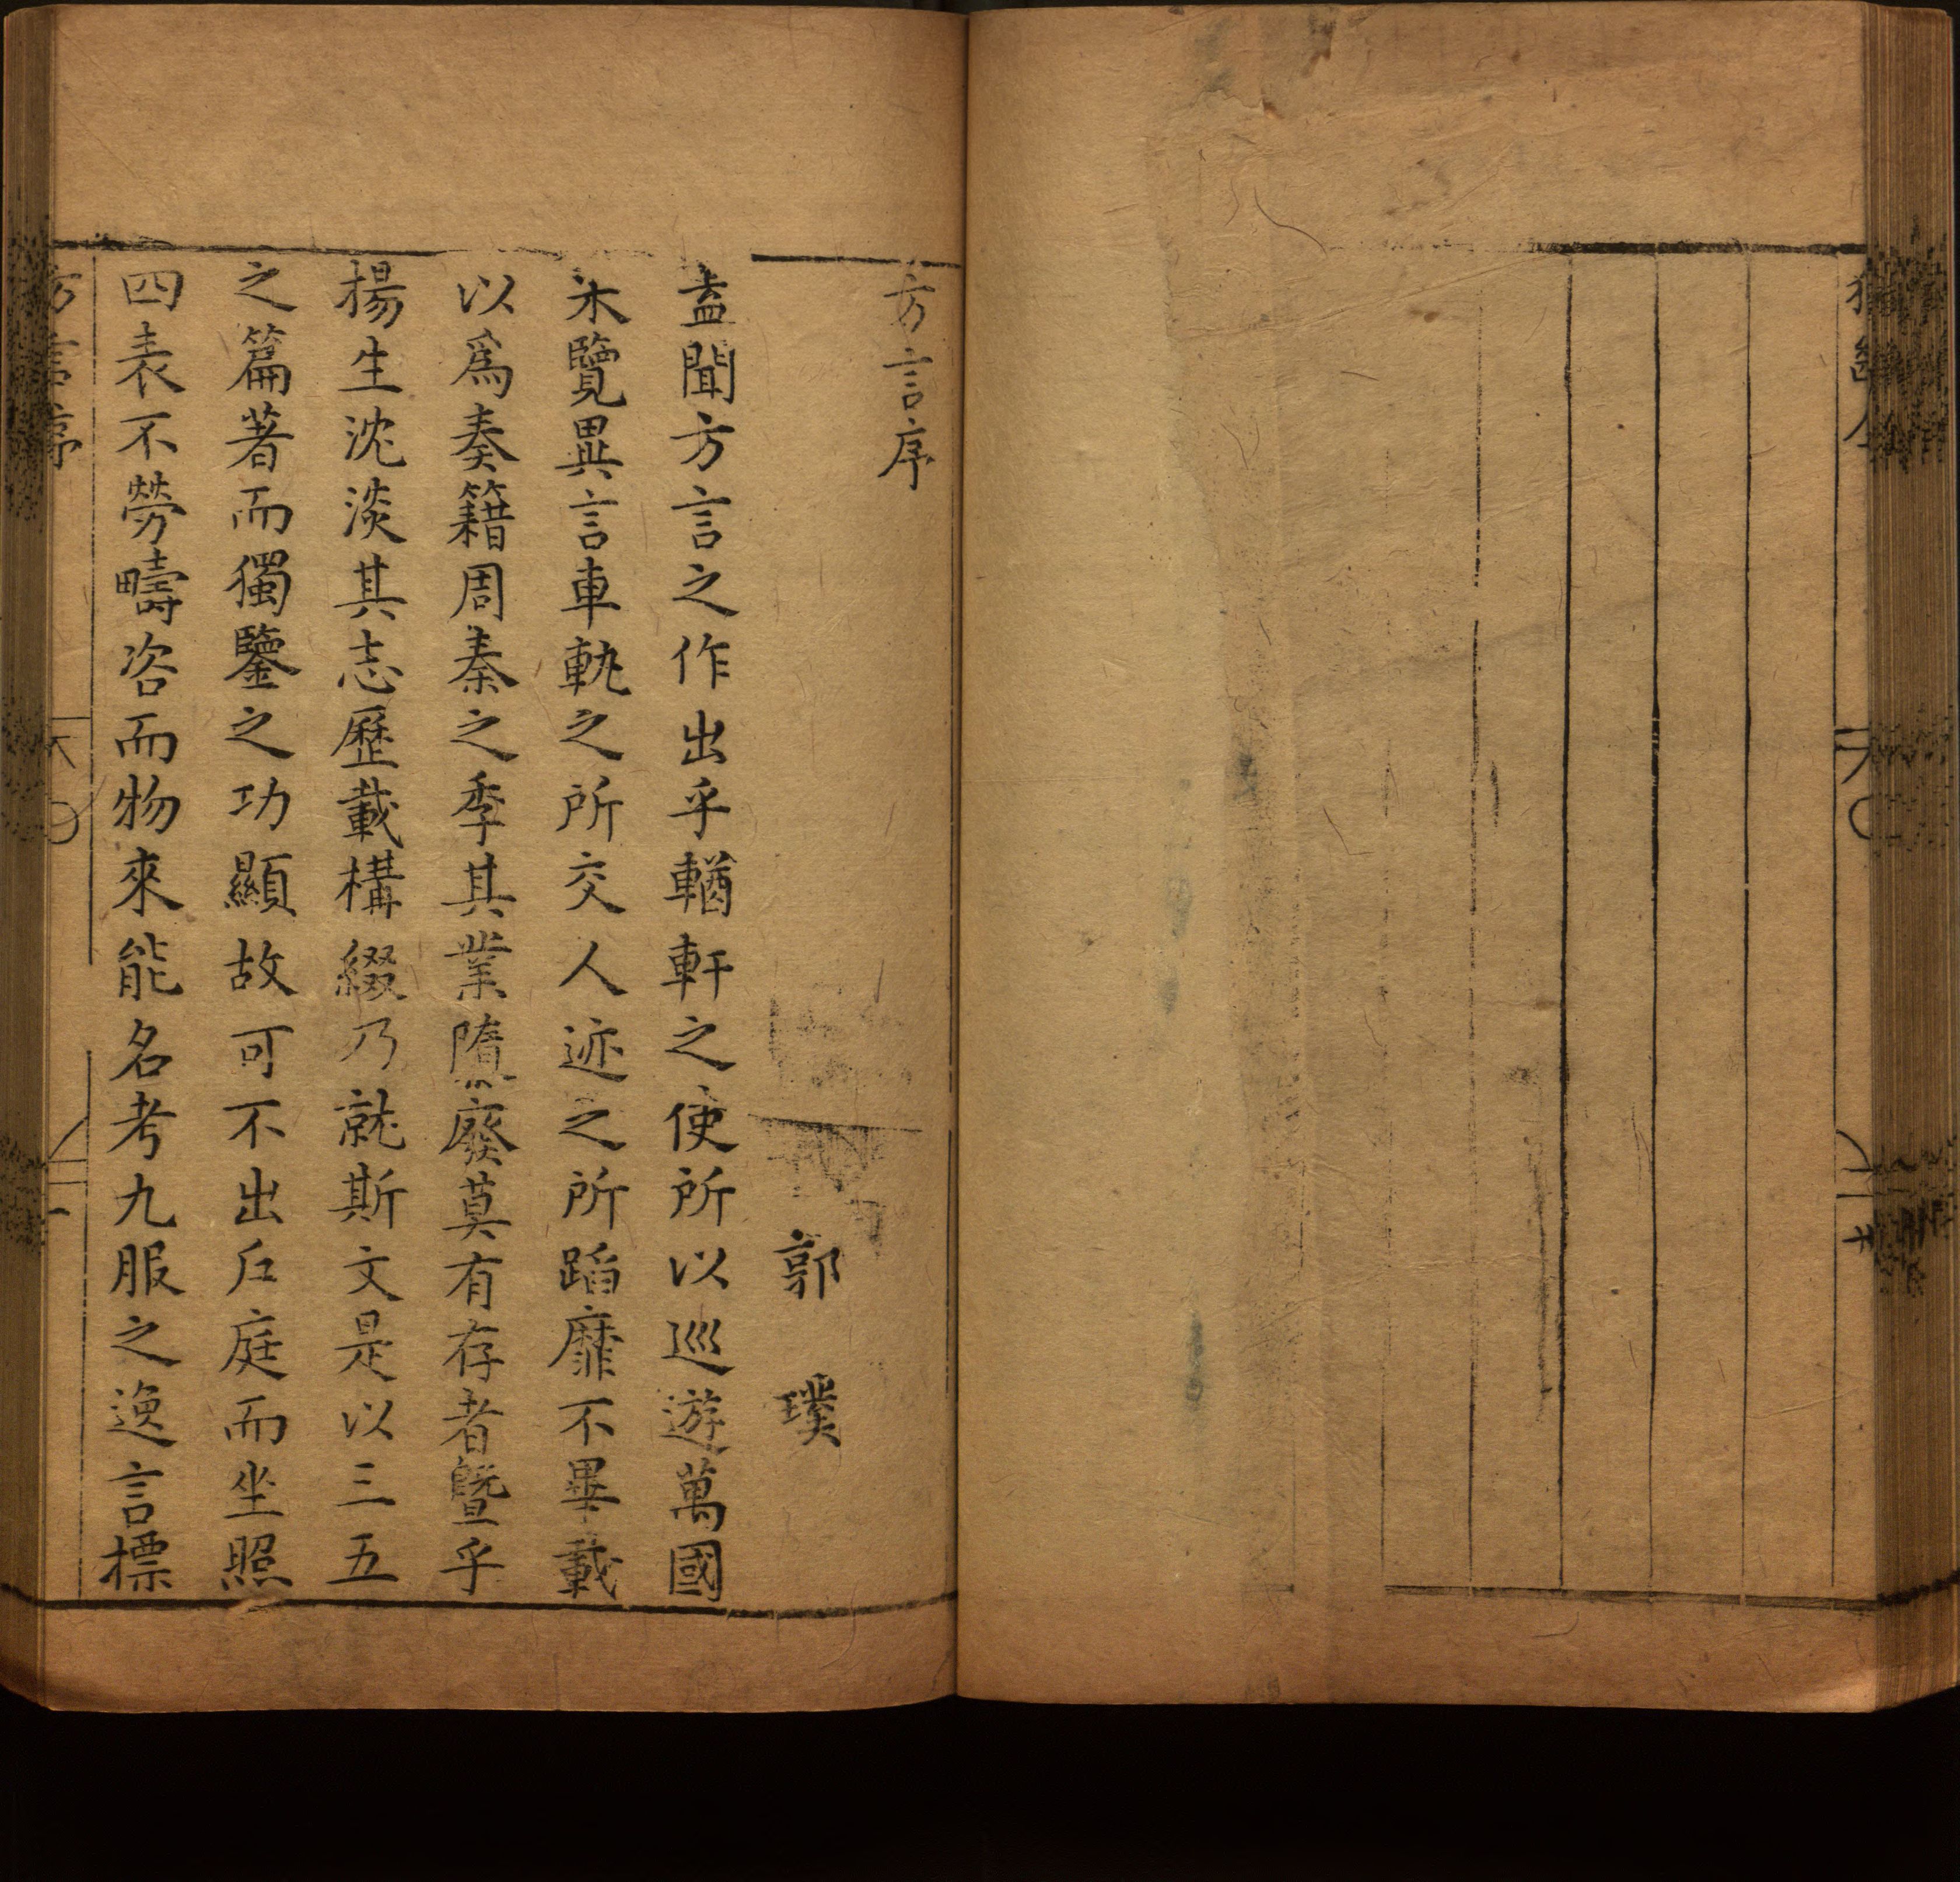 方言序
郭璞
盍聞方言之作出乎輶軒之使所以巡遊萬國
釆覽異言車軌之所交人迹之所蹈靡不畢載
以爲奏籍周秦之季其業隳廢莫有存者曁乎
楊生沈淡其志歷載構綴乃就斯文是以三五
之篇著而獨鑒之功顯故可不出戶庭而坐照
四表不勞疇咨而物來能名考九服之逸言標
方言序
一